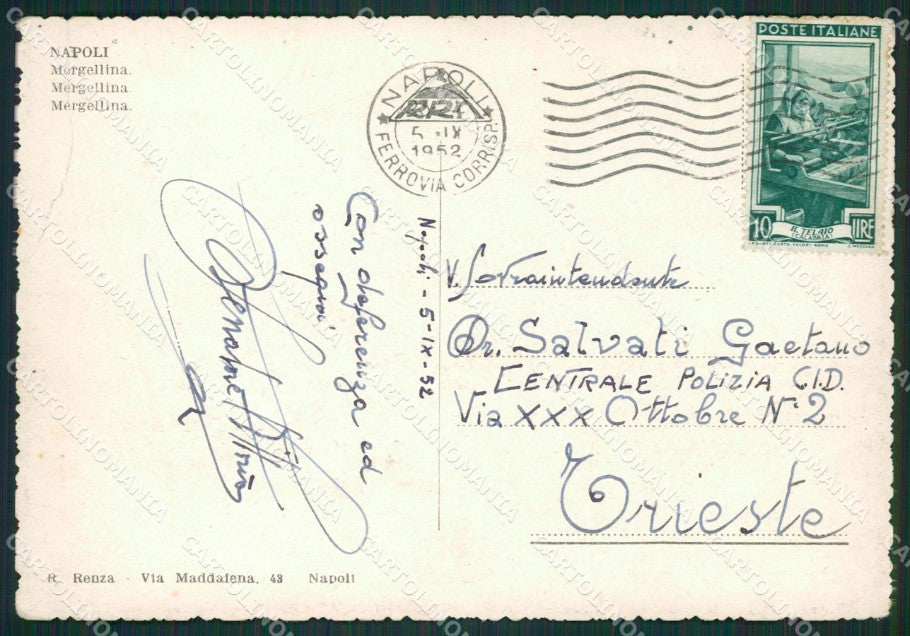 NAPOLI
Mergellina.
Mergellina.
Mergellina.
NAPOLI
5 - IX
1952
FERROVIA CORRISP.
POSTE ITALIANE
10 LIRE
IL TELAIO
(CALABRIA)
Napoli - 5-IX-52
Con deferenza ed
ossequi
V. Sovraintendente
Dr. Salvati Gaetano
CENTRALE POLIZIA C.I.D.
Via XXX Ottobre N° 2
Trieste
R. Renza - Via Maddalena, 43 Napoli
CARTOLINOMANIA